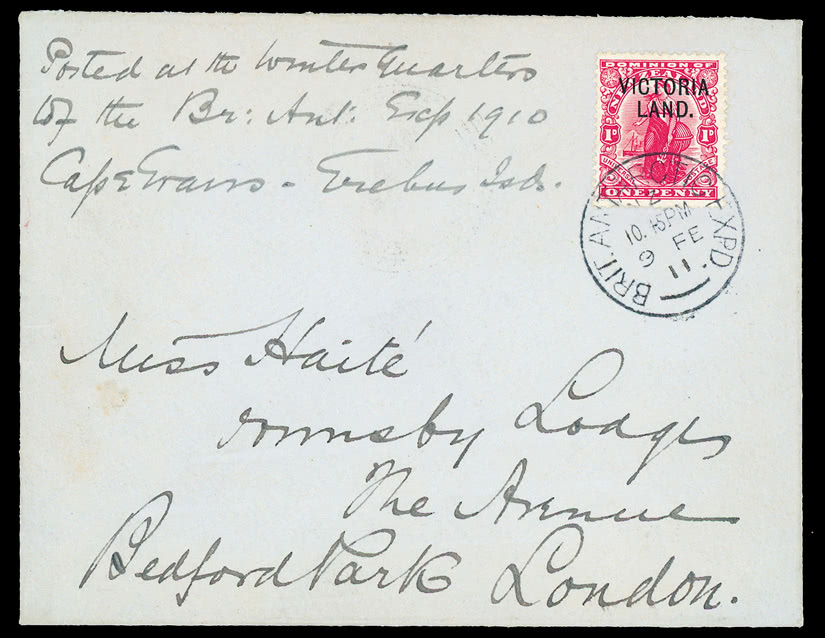 Posted at the Winter Quarters
of the Br: Ant: Exp 1910
Cape Evans - Erebus Isd.
DOMINION OF
NEW ZEALAND
VICTORIA
LAND.
1D 1D
UNIVERSAL POSTAGE
ONE PENNY
BRIT. ANTARCTIC EXPD.
10.15PM
9 FE
11
Miss Haité
Ormsby Lodge
The Avenue
Bedford Park London.